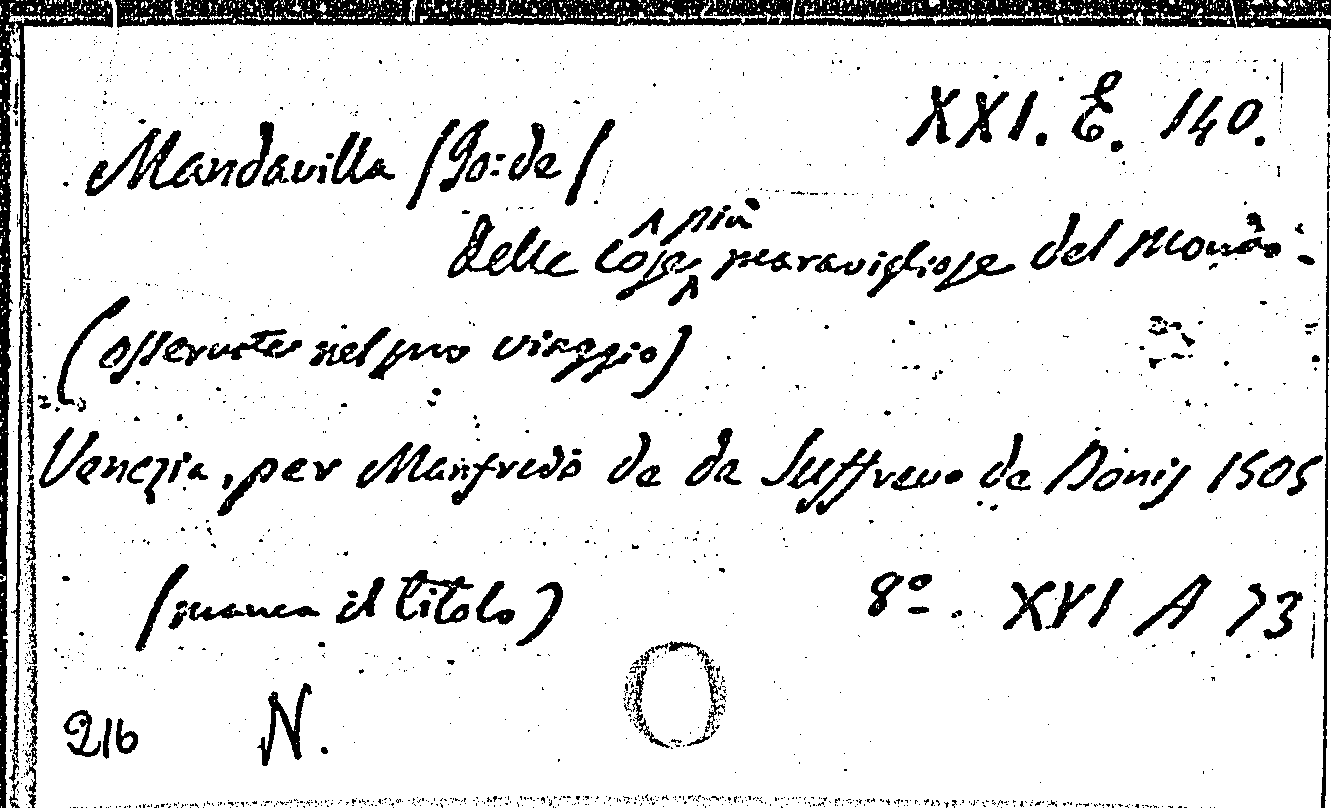 XXI. E. 140.
Mandavilla (Go: de)
delle Cose più maravigliose del Mondo
(osservate nel suo viaggio)
Venezia, per Manfredo de da Suffreno de Bonis 1505
(manca il titolo) 8º. XVI A 73
216 N.